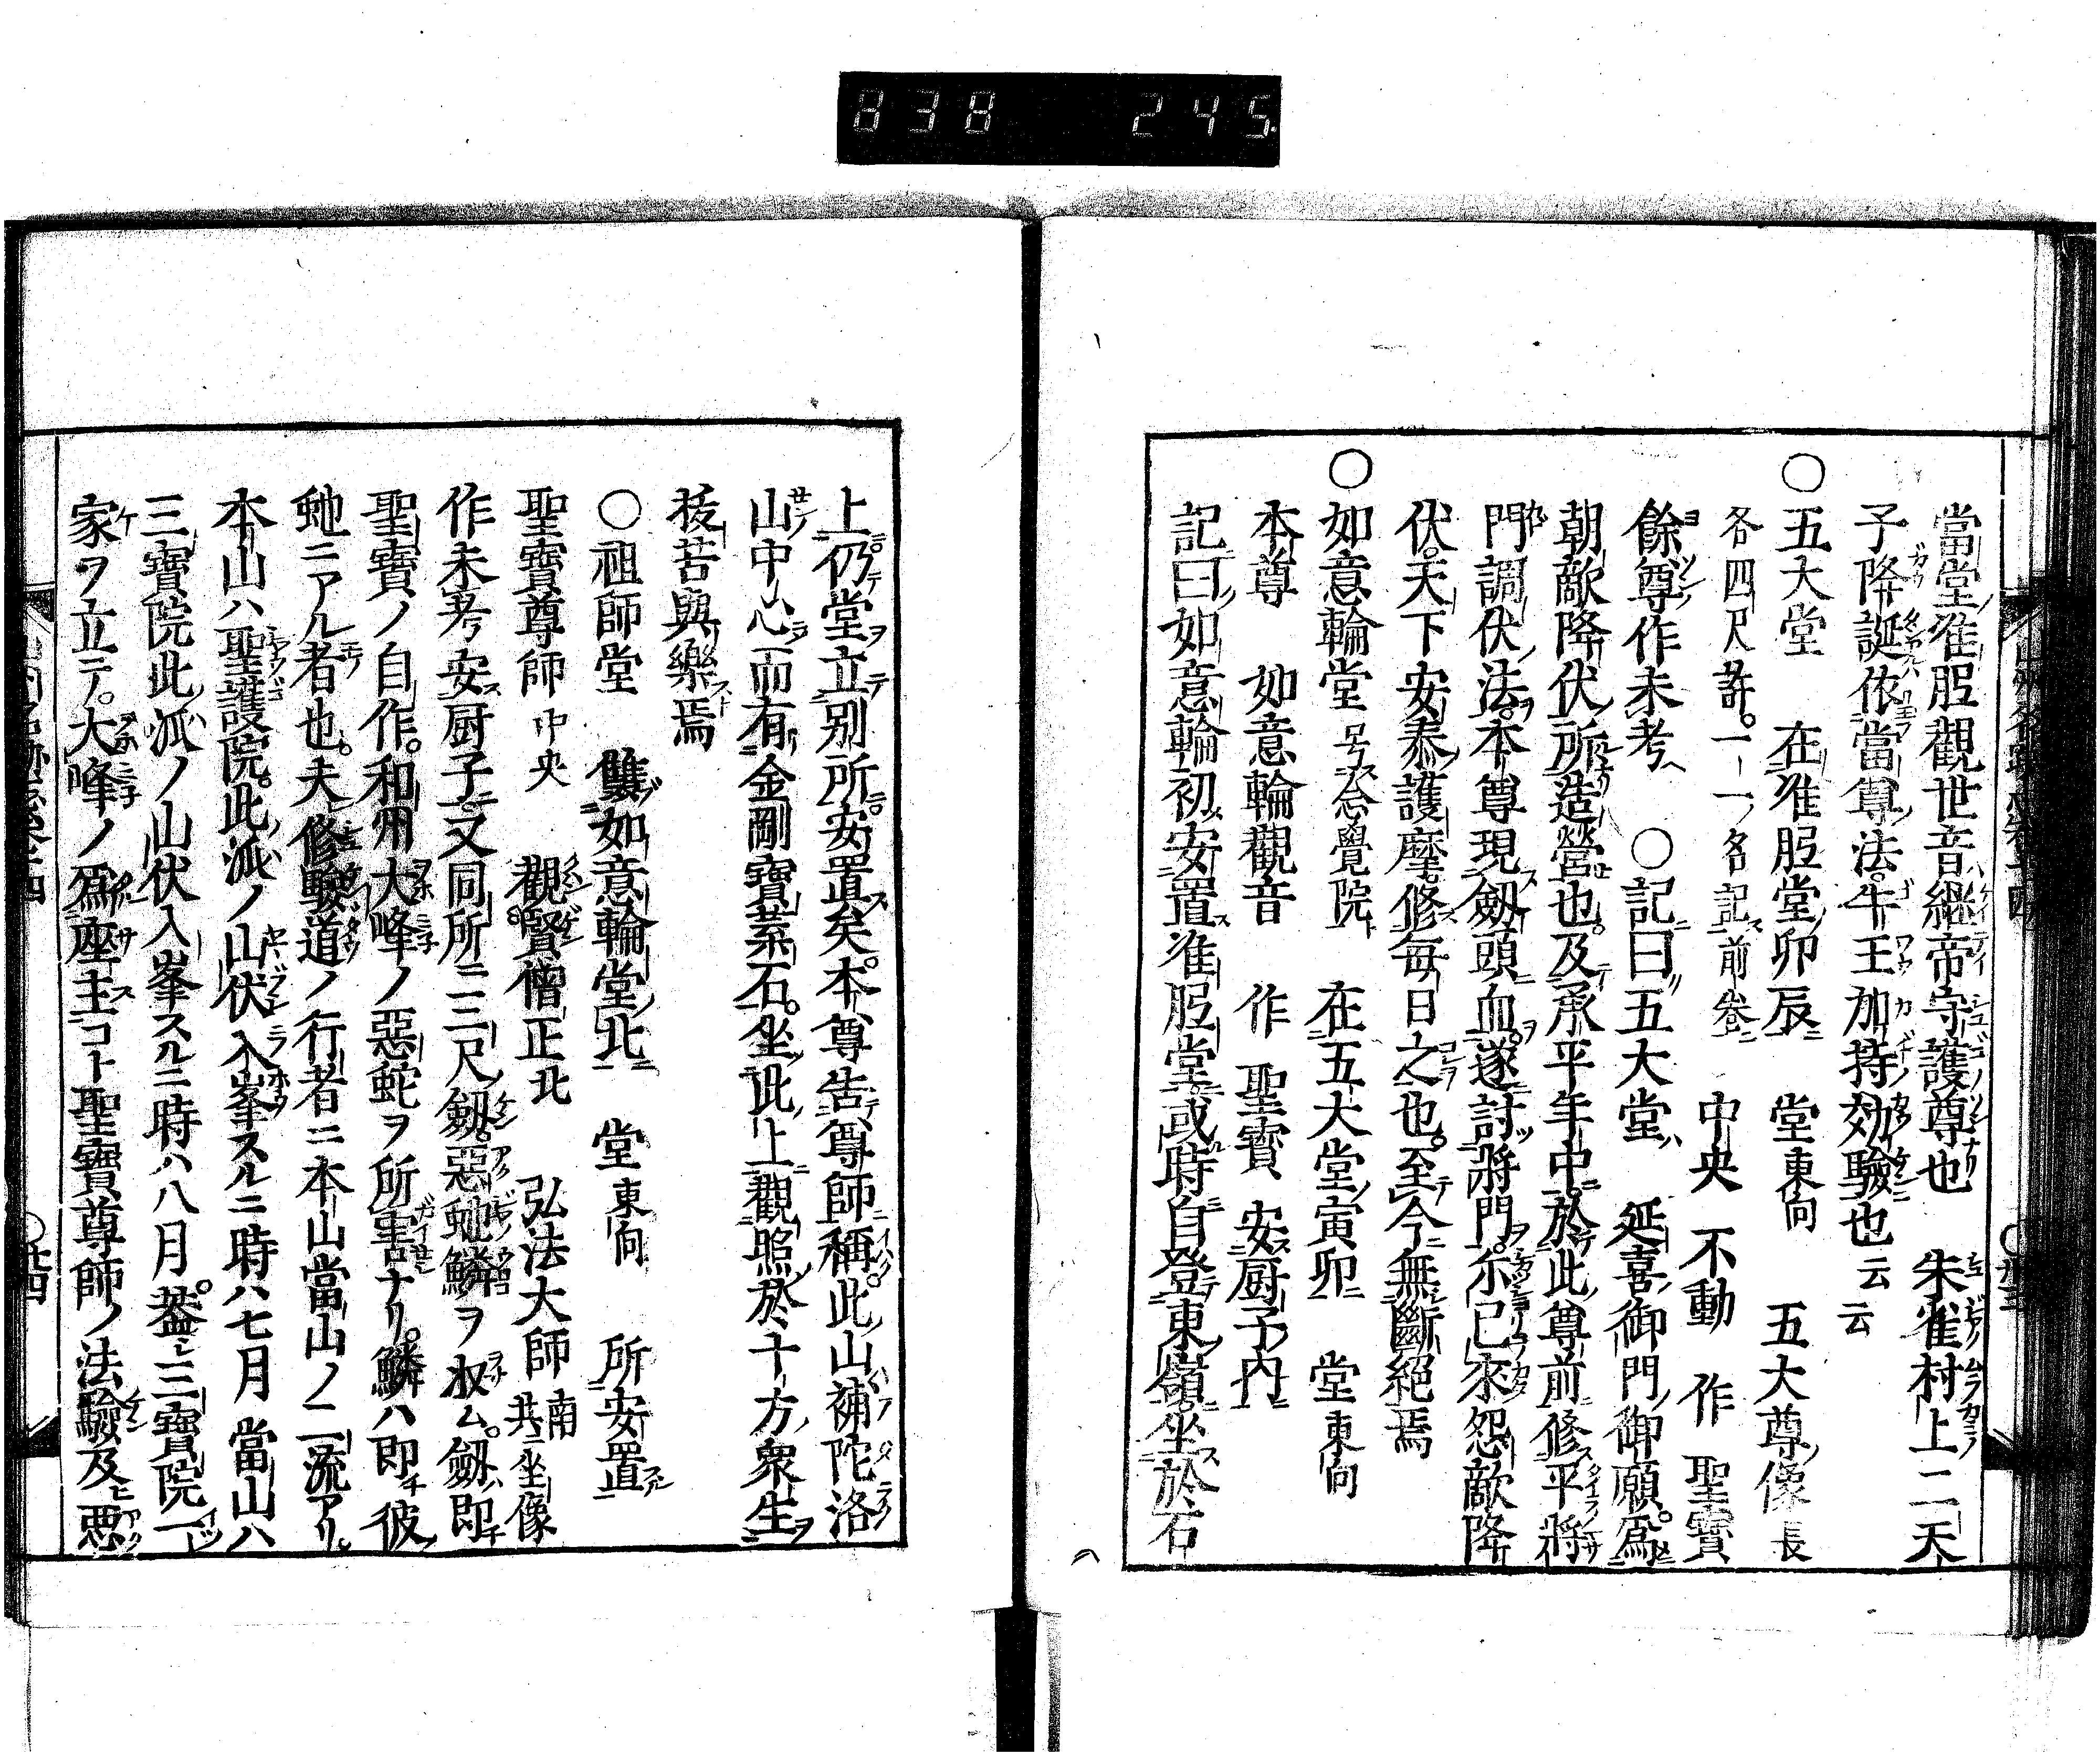 838 245
當堂准胝觀世音ハ繼帝守護尊也 朱雀村上二天
子降誕依當尊法牛王加持効驗也云云
○五大堂 在准胝堂卯辰 堂東向 五大尊像長
各四尺許。一一名記前巻 中央 不動 作 聖寶
餘尊作未考 ○記曰五大堂ハ 延喜御門御願。爲
朝敵降伏所造營也。及承平年中。於此尊前修平將
門調伏法。本尊現劔頭血。遂討將門。尓已來怨敵降
伏。天下安泰護摩。修毎日之也。至今無斷絕焉
○如意輪堂 号 覺院 在五大堂寅卯 堂東向
本尊 如意輪觀音 作 聖寶 安厨子内
記曰如意輪初安置准胝堂。或時自登東嶺坐於石
上。仍堂立別所安置矣。本尊告尊師稱。此山補陀洛
山中心而有金剛寶葉石。坐此上觀照於十方衆生
拔苦與樂焉
○祖師堂 雙如意輪堂北 堂東向 所安置
聖寶尊師中央 觀賢僧正北 弘法大師南共坐像
作未考安厨子。又同所ニ三尺劔。惡虵鱗ヲ収ム。劔即
聖寶ノ自作。和州大峰ノ惡蛇ヲ所害ナリ。鱗ハ即彼
虵ニアル者也。夫修驗道ノ行者ニ本山當山ノ二流アリ。
本山ハ聖護院。此派ノ山伏入峯スルニ時ハ七月 當山ハ
三寶院此派ノ山伏入峯スルニ時ハ八月。蓋三寶院一
家ヲ立テ。大峰ノ爲座主コト聖寶尊師ノ法驗及ヒ悪